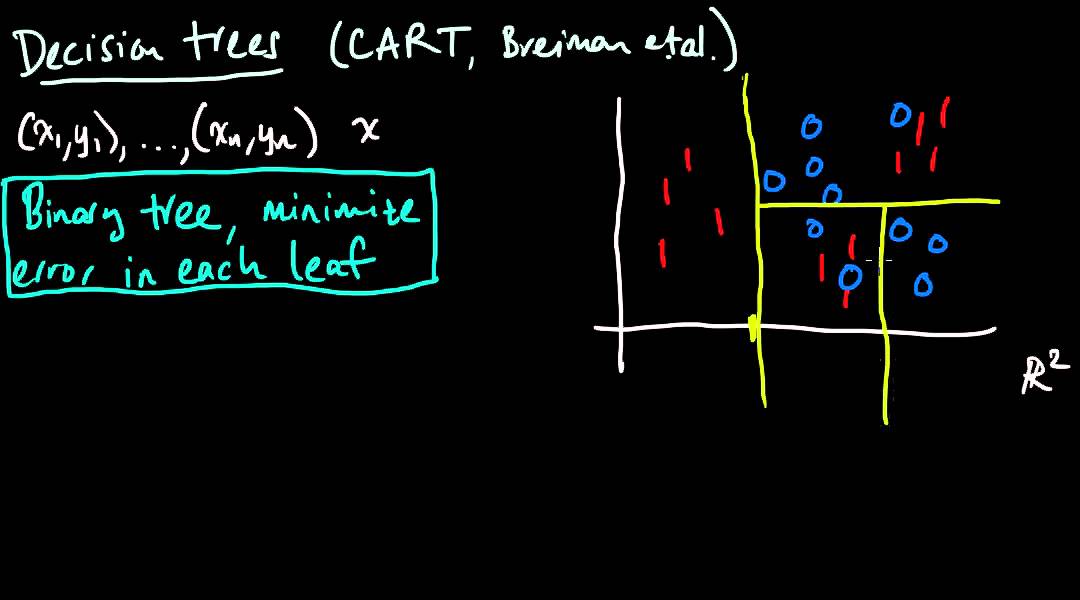 Decision trees (CART, Breiman et al.)
(x₁,y₁), ...,(xₙ,yₙ) x
Binary tree, minimize
error in each leaf
0 0 1 1
1 0 1 1
1 0 0
1 0 1 0 0
1 1 0 0
1
ℝ²